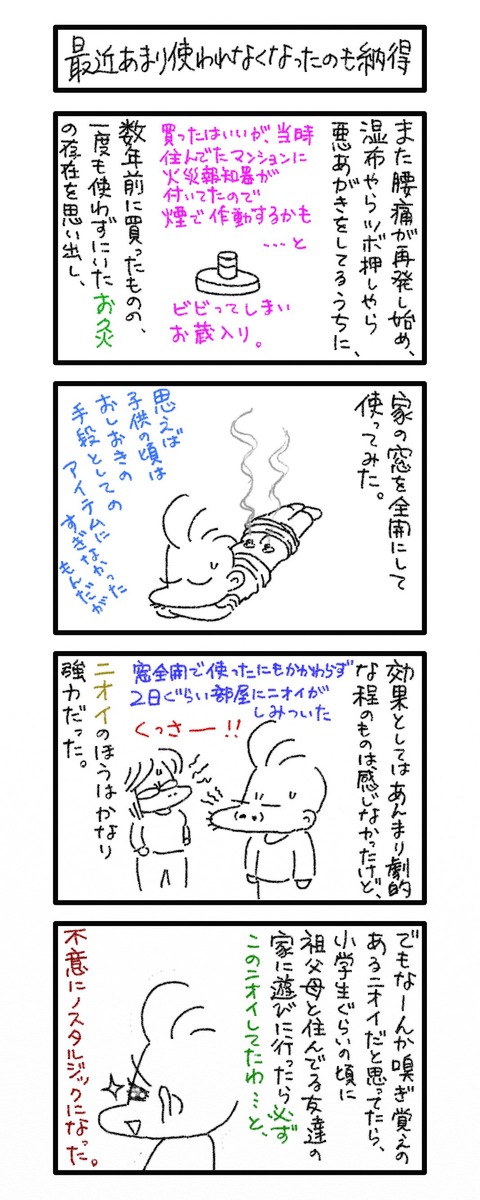 最近あまり使われなくなったのも納得
また腰痛が再発し始め、
湿布やらツボ押しやら
悪あがきをしてるうちに、
買ったはいいが、当時
住んでたマンションに
火災報知器が
付いてたので
煙で作動するかも
…と
ビビってしまい
お蔵入り。
数年前に買ったものの、
一度も使わずにいたお灸
の存在を思い出し、
家の窓を全開にして
使ってみた。
思えば
子供の頃は
おしおきの
手段としての
アイテムに
すぎなかった
もんだが
効果としてはあんまり劇的
な程のものは感じなかったけど、
窓全開で使ったにもかかわらず
2日ぐらい部屋にニオイが
しみついた
くっさー!!
ニオイのほうはかなり
強力だった。
でもなーんか嗅ぎ覚えの
あるニオイだと思ってたら、
小学生ぐらいの頃に
祖父母と住んでる友達の
家に遊びに行ったら必ず
このニオイしてたわ…と、
不意にノスタルジックになった。